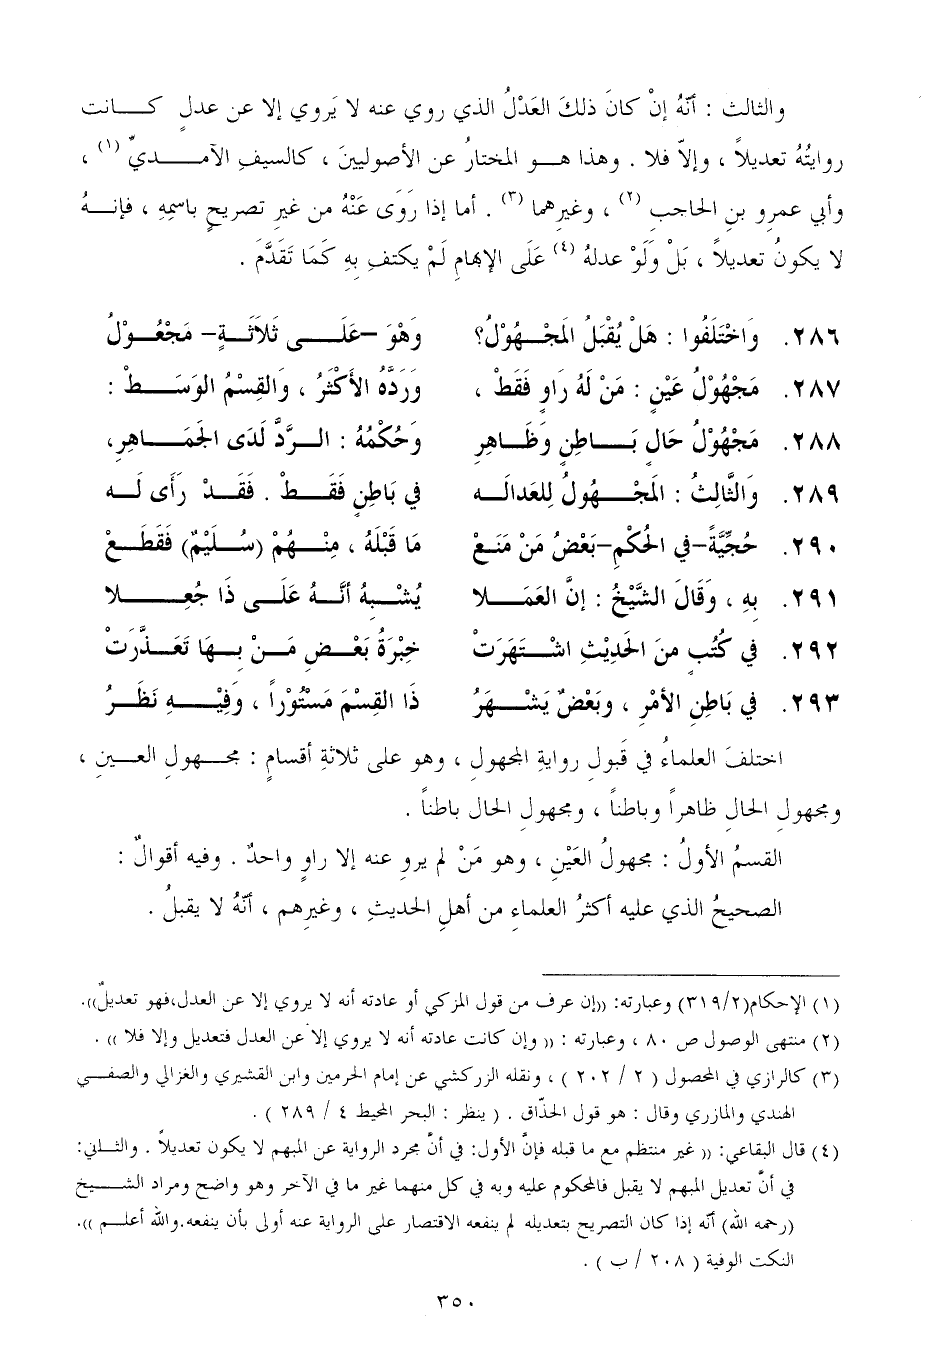 والثالث : أنّهُ إنْ كانَ ذلكَ العَدْلُ الذي روي عنه لا يَروي إلا عن عدلٍ كانت
روايتُهُ تعديلاً ، وإلاّ فلا . وهذا هو المختارُ عن الأصوليينَ ، كالسيفِ الآمديِّ (١) ،
وأبي عمرو بنِ الحاجبِ (٢) ، وغيرِهما (٣) . أما إذا رَوَى عَنْهُ من غيرِ تصريحٍ باسمِهِ ، فإنهُ
لا يكونُ تعديلاً ، بَلْ ولَوْ عدلهُ (٤) عَلَى الإبهامِ لَمْ يكتفِ بهِ كَمَا تَقَدَّمَ .
٢٨٦. وَاخْتَلَفُوا : هَلْ يُقْبَلُ المَجْهُوْلُ؟ وَهْوَ –عَلَى ثَلاَثَةٍ– مَجْعُوْلُ
٢٨٧. مَجْهُوْلُ عَيْنٍ : مَنْ لَهُ رَاوٍ فَقَطْ ، وَرَدَّهُ الأَكْثَرُ ، وَالقِسْمُ الوَسَطْ :
٢٨٨. مَجْهُوْلُ حَالٍ بَاطِنٍ وَظَاهِرِ وَحُكْمُهُ : الرَّدُّ لَدَى الجَمَاهِرِ،
٢٨٩. وَالثَّالِثُ : المَجْهُولُ لِلعَدالَه في بَاطِنٍ فَقَطْ . فَقَدْ رَأَى لَه
٢٩٠. حُجِّيَّةً–في الحُكْمِ–بَعْضُ مَنْ مَنَعْ مَا قَبْلَهُ ، مِنْهُمْ (سُلَيْمٌ) فَقَطَعْ
٢٩١. بِهِ ، وَقَالَ الشَّيْخُ : إنَّ العَمَلا يُشْبِهُ أنَّهُ عَلَى ذَا جُعِلا
٢٩٢. في كُتُبٍ منَ الحَدِيْثِ اشْتَهَرَتْ خِبْرَةُ بَعْضِ مَنْ بِهَا تَعَذَّرَتْ
٢٩٣. في بَاطِنِ الأمْرِ ، وبَعْضٌ يَشْهَرُ ذَا القِسْمَ مَسْتُوْراً ، وَفِيْهِ نَظَرُ
اختلفَ العلماءُ في قَبولِ روايةِ المجهولِ ، وهو على ثلاثةِ أقسامٍ : مجهولِ العينِ ،
ومجهولِ الحالِ ظاهراً وباطناً ، ومجهولِ الحالِ باطناً .
القسمُ الأولُ : مجهولُ العَيْنِ ، وهو مَنْ لم يروِ عنه إلا راوٍ واحدٌ . وفيه أقوالٌ :
الصحيحُ الذي عليه أكثرُ العلماءِ من أهلِ الحديثِ ، وغيرِهم ، أنّهُ لا يقبلُ .
(١) الإحكام(٣١٩/٢) وعبارته: ((إن عرف من قول المزكي أو عادته أنه لا يروي إلا عن العدل،فهو تعديلٌ)).
(٢) منتهى الوصول ص ٨٠ ، وعبارته : (( وإن كانت عادته أنه لا يروي إلا عن العدل فتعديل وإلا فلا )) .
(٣) كالرازي في المحصول ( ٢ / ٢٠٢ ) ، ونقله الزركشي عن إمام الحرمين وابن القشيري والغزالي والصفي
الهندي والمازري وقال : هو قول الحذّاق . ( ينظر : البحر المحيط ٤ / ٢٨٩ ) .
(٤) قال البقاعي: (( غير منتظم مع ما قبله فإنَّ الأول: في أنَّ مجرد الرواية عن المبهم لا يكون تعديلاً . والثاني:
في أنَّ تعديل المبهم لا يقبل فالمحكوم عليه وبه في كل منهما غير ما في الآخر وهو واضح ومراد الشيخ
(رحمه الله) أنّه إذا كان التصريح بتعديله لم ينفعه الاقتصار على الرواية عنه أولى بأن ينفعه.والله أعلم )).
النكت الوفية ( ٢٠٨ / ب ) .
٣٥٠